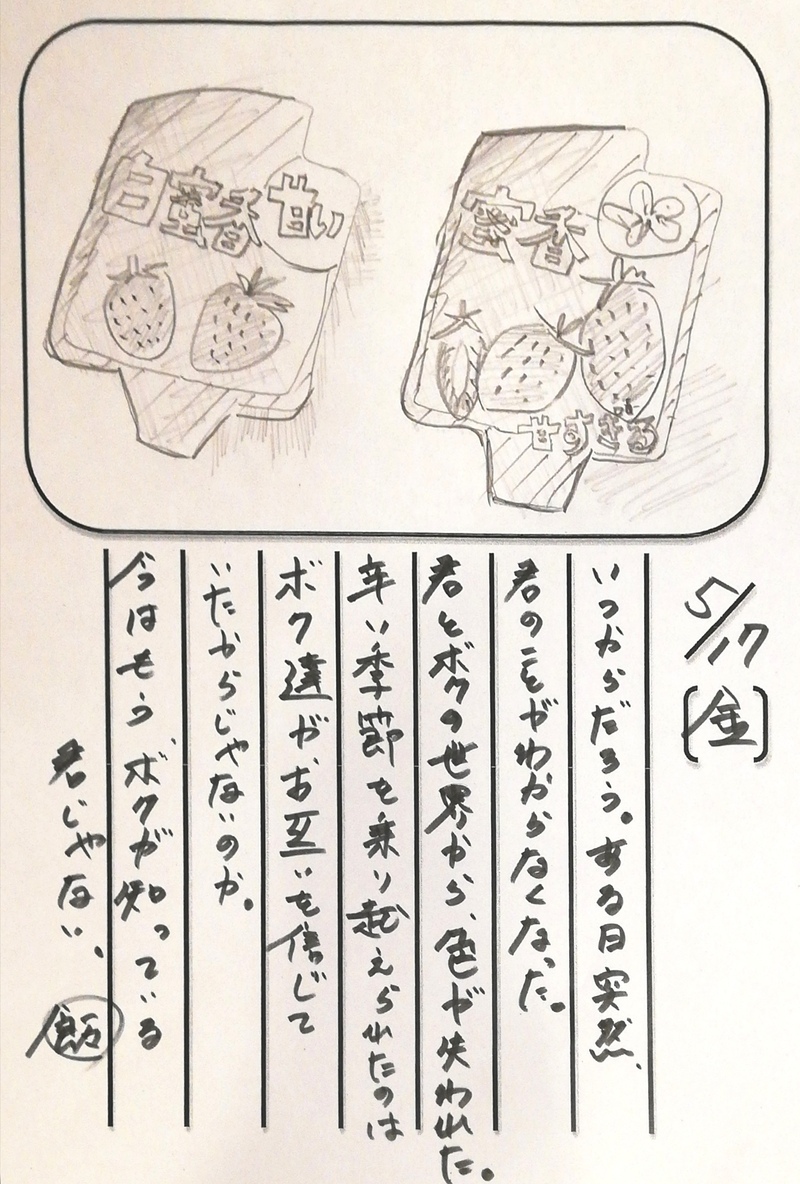 白蜜香
甘い
蜜香
甘すぎる
5/17
[金]
いつからだろう。ある日突然、
君のことがわからなくなった。
君とボクの世界から、色が失われた。
辛い季節を乗り越えられたのは
ボク達が、お互いを信じて
いたからじゃないのか。
今はもう、ボクが知っている
君じゃない、